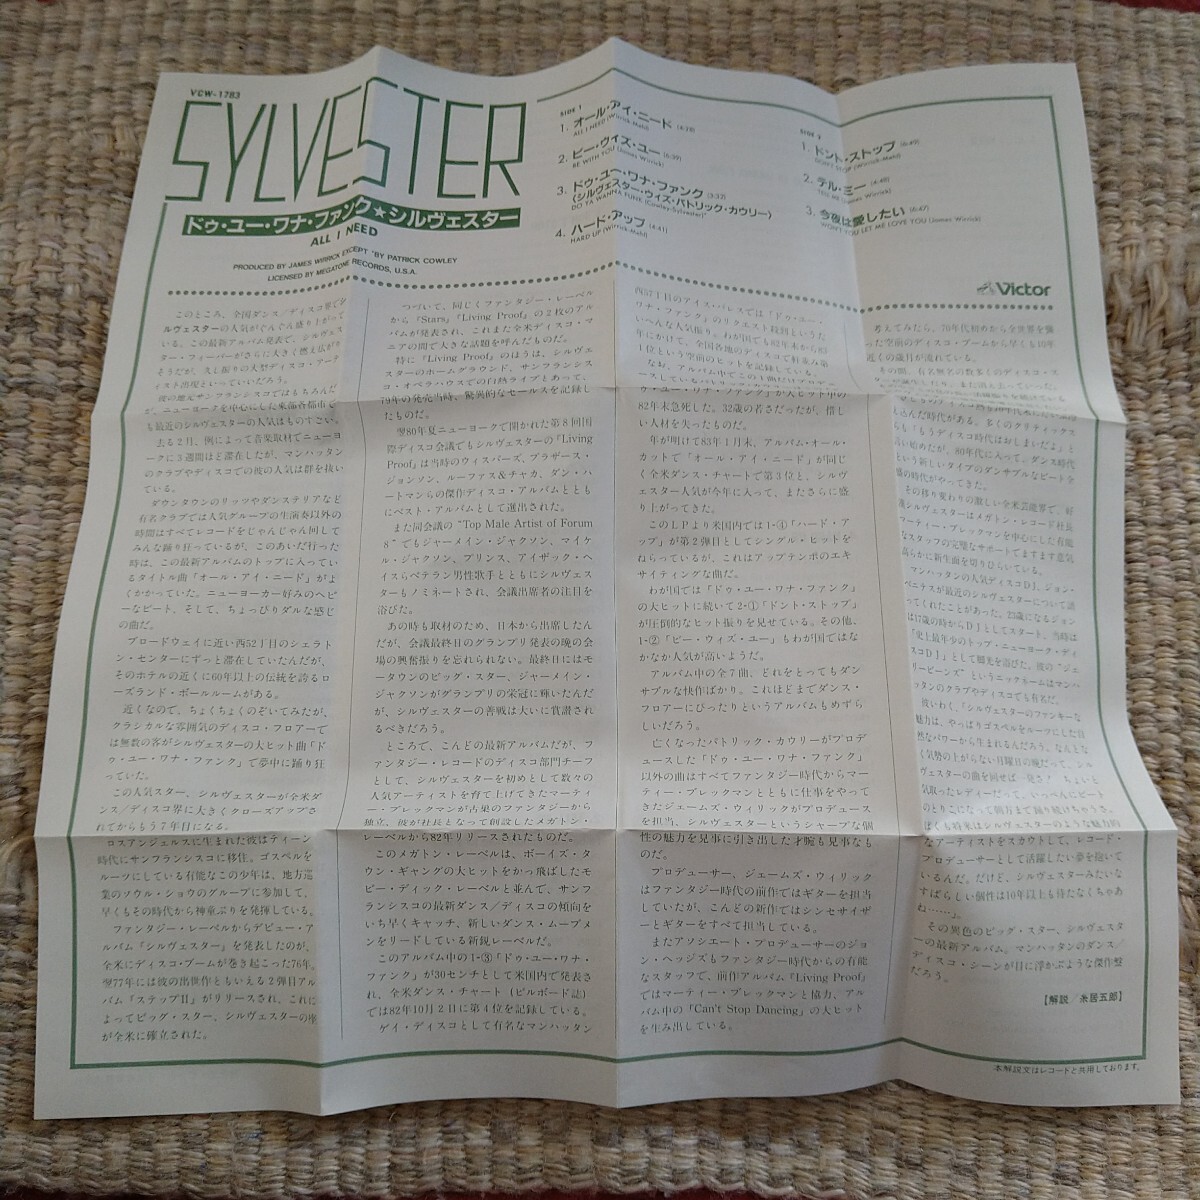 VCW-1783
SYLVESTER
ドゥ・ユー・ワナ・ファンク★シルヴェスター
ALL I NEED
PRODUCED BY JAMES WIRRICK EXCEPT *BY PATRICK COWLEY
LICENSED BY MEGATONE RECORDS, U.S.A.
SIDE 1
1. オール・アイ・ニード
ALL I NEED (Wirrick-Mehl)
2. ビー・ウィズ・ユー (6:39)
BE WITH YOU (James Wirrick)
3. ドゥ・ユー・ワナ・ファンク (3:37)
〈シルヴェスター・ウィズ・パトリック・カウリー〉
DO YA WANNA FUNK (Cowley-Sylvester)*
4. ハード・アップ (4:41)
HARD UP (Wirrick-Mehl)
SIDE 2
1. ドント・ストップ
DON'T STOP (Wirrick-Mehl)
2. テル・ミー
TELL ME (James Wirrick)
3. 今夜は愛したい (6:47)
WON'T YOU LET ME LOVE YOU (James Wirrick)
Victor
このところ、全国ダンス/ディスコ界でシ
ルヴェスターの人気がぐんぐん盛り上がって
いる。この最新アルバム発表で、シルヴェス
ター・フィーバーがさらに大きく燃え広がり
そうだが、久し振りの大型ディスコ・アーテ
ィスト出現といっていいだろう。
彼の地元サンフランシスコではもちろんだ
が、ニューヨークを中心にした東部各都市で
も最近のシルヴェスターの人気はものすごい。
去る2月、例によって音楽取材でニューヨ
ークに3週間ほど滞在したが、マンハッタン
のクラブやディスコでの彼の人気は群を抜い
ている。
ダウンタウンのリッツやダンステリアなど
有名クラブでは人気グループの生演奏以外の
時間はすべてレコードをじゃんじゃん回して
みんな踊り狂っているが、このあいだ行った
時は、この最新アルバムのトップに入ってい
るタイトル曲「オール・アイ・ニード」がよ
くかかっていた。ニューヨーカー好みのヘビ
ーなビート、そして、ちょっぴりダルな感じ
の曲だ。
ブロードウェイに近い西52丁目のシェラト
ン・センターにずっと滞在していたんだが、
そのホテルの近くに60年以上の伝統を誇るロ
ーズランド・ボールルームがある。
近くなので、ちょくちょくのぞいてみたが、
クラシカルな雰囲気のディスコ・フロアーで
は無数の客がシルヴェスターの大ヒット曲「ド
ゥ・ユー・ワナ・ファンク」で夢中に踊り狂
っていた。
この人気スター、シルヴェスターが全米ダ
ンス/ディスコ界に大きくクローズアップさ
れてからもう7年目になる。
ロスアンジェルスに生まれた彼はティーン
時代にサンフランシスコに移住。ゴスペルを
ルーツにしている有能なこの少年は、地方巡
業のソウル・ショウのグループに参加して、
早くもその時代から神童ぶりを発揮している。
ファンタジー・レーベルからデビュー・ア
ルバム『シルヴェスター』を発表したのが、
全米にディスコ・ブームが巻き起こった76年。
翌77年には彼の出世作ともいえる2弾目アル
バム『ステップII』がリリースされ、これに
よってビッグ・スター、シルヴェスターの座
が全米に確立された。
つづいて、同じくファンタジー・レーベル
から『Stars』『Living Proof』の2枚のアル
バムが発表され、これまた全米ディスコ・マ
ニアの間で大きな話題を呼んだものだ。
特に『Living Proof』のほうは、シルヴェ
スターのホームグラウンド、サンフランシス
コ・オペラハウスでの白熱ライブとあって、
79年の発売当時、驚異的なセールスを記録し
たものだ。
翌80年夏ニューヨークで開かれた第8回国
際ディスコ会議でもシルヴェスターの『Living
Proof』は当時のウィスパーズ、ブラザース・
ジョンソン、ルーファス&チャカ、ダン・ハ
ートマンらの傑作ディスコ・アルバムととも
にベスト・アルバムとして選出された。
また同会議の "Top Male Artist of Forum
8" でもジャーメイン・ジャクソン、マイケ
ル・ジャクソン、プリンス、アイザック・ヘ
イスらベテラン男性歌手とともにシルヴェス
ターもノミネートされ、会議出席者の注目を
浴びた。
あの時も取材のため、日本から出席したん
だが、会議最終日のグランプリ発表の晩の会
場の興奮振りを忘れられない。最終日にはモ
ータウンのビッグ・スター、ジャーメイン・
ジャクソンがグランプリの栄冠に輝いたんだ
が、シルヴェスターの善戦は大いに賞讃され
るべきだろう。
ところで、こんどの最新アルバムだが、フ
ァンタジー・レコードのディスコ部門チーフ
として、シルヴェスターを初めとして数々の
人気アーティストを育て上げてきたマーティ
ー・ブレックマンが古巣のファンタジーから
独立、彼が社長となって創設したメガトン・
レーベルから82年リリースされたものだ。
このメガトン・レーベルは、ボーイズ・タ
ウン・ギャングの大ヒットをかっ飛ばしたモ
ビー・ディック・レーベルと並んで、サンフ
ランシスコの最新ダンス/ディスコの傾向を
いち早くキャッチ、新しいダンス・ムーブメ
ンをリードしている新鋭レーベルだ。
このアルバム中の1・③「ドゥ・ユー・ワナ・
ファンク」が30センチとして米国内で発表さ
れ、全米ダンス・チャート(ビルボード誌)
では82年10月2日に第4位を記録している。
ゲイ・ディスコとして有名なマンハッタン
西57丁目のアイス・パレスでは「ドゥ・ユー・
ワナ・ファンク」のリクエスト殺到というた
いへんな人気振り。わが国でも82年末から83
年にかけて、全国各地のディスコで軒並み第
1位という空前のヒットを記録している。
ゥ・ユー・ワナ・ファンク」が大ヒット中の
82年末急死した。32歳の若さだったが、惜し
い人材を失ったものだ。
年が明けて83年1月末、アルバム・オール・
カットで「オール・アイ・ニード」が同じ
く全米ダンス・チャートで第3位と、シルヴ
ェスター人気が今年に入って、またさらに盛
り上がってきた。
このLPより米国内では1・④「ハード・ア
ップ」が第2弾目としてシングル・ヒットを
ねらっているが、これはアップテンポのエキ
サイティングな曲だ。
わが国では「ドゥ・ユー・ワナ・ファンク」
の大ヒットに続いて2・①「ドント・ストップ」
が圧倒的なヒット振りを見せている。その他、
1・②「ビー・ウィズ・ユー」もわが国ではな
かなか人気が高いようだ。
アルバム中の全7曲、どれをとってもダン
サブルな快作ばかり。これはどまでダンス・
フロアーにぴったりというアルバムもめずら
しいだろう。
亡くなったパトリック・カウリーがプロデ
ュースした「ドゥ・ユー・ワナ・ファンク」
以外の曲はすべてファンタジー時代からマー
ティー・ブレックマンとともに仕事をやって
きたジェームズ・ウィリックがプロデュース
を担当、シルヴェスターというシャープな個
性の魅力を見事に引き出した才腕も見事なも
のだ。
プロデューサー、ジェームズ・ウィリック
はファンタジー時代の前作ではギターを担当
していたが、こんどの新作ではシンセサイザ
ーとギターをすべて担当している。
またアソシエート・プロデューサーのジョ
ン・ヘッジズもファンタジー時代からの有能
なスタッフで、前作アルバム『Living Proof』
ではマーティー・ブレックマンと協力、アル
バム中の「Can't Stop Dancing」の大ヒット
を生み出している。
考えてみたら、70年代初めから全世界を襲
った空前のディスコ・ブームから早くも10年
近くの歳月が流れている。
込んだ時代がある。多くのクリティックス
らも「もうディスコ時代はおしまいだよ」と
という新しいタイプのダンサブルなビート全
盛の時代がやってきた。
その移り変わりの激しい全米芸能界で、好
漢シルヴェスターはメガトン・レコード社長
マーティー・ブレックマンを中心にした有能
なスタッフの完璧なサポートでますます意気
高らかに新生面を切りひらいている。
マンハッタンの人気ディスコDJ、ジョン・
ベニテスが最近のシルヴェスターについて語
ってくれたことがあった。23歳になるジョン
は17歳の時からDJとしてスタート、当時は
「史上最年少のトップ・ニューヨーク・ディ
スコDJ」として脚光を浴びた。彼の "ジェ
リービーンズ" というニックネームはマンハ
ッタンのクラブやディスコでも有名だ。
彼いわく、「シルヴェスターのファンキーな
魅力は、やっぱりゴスペルをルーツにした自
然なパワーから生まれるんだろう。なんとな
く気勢の上がらない月曜日の晩だって、シル
ヴェスターの曲を回せば一発さ！ ちょいと
気取ったレディーだって、いっぺんにビート
のとりこになって朝方まで踊り続けちゃうさ。
ぼくも将来はシルヴェスターのような魅力的
なアーティストをスカウトして、レコード・
プロデューサーとして活躍したい夢を抱いて
いるんだ。だけど、シルヴェスターみたいな
すばらしい個性は10年以上も待たなくちゃあ
ね……」。
その異色のビッグ・スター、シルヴェスタ
ーの最新アルバム。マンハッタンのダンス/
ディスコ・シーンが目に浮かぶような傑作盤
だろう。
【解説/糸居五郎】
本解説文はレコードと共用しております。